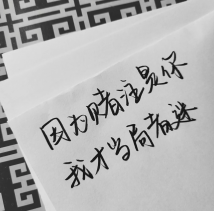 因为赌注是你
我才当局者迷